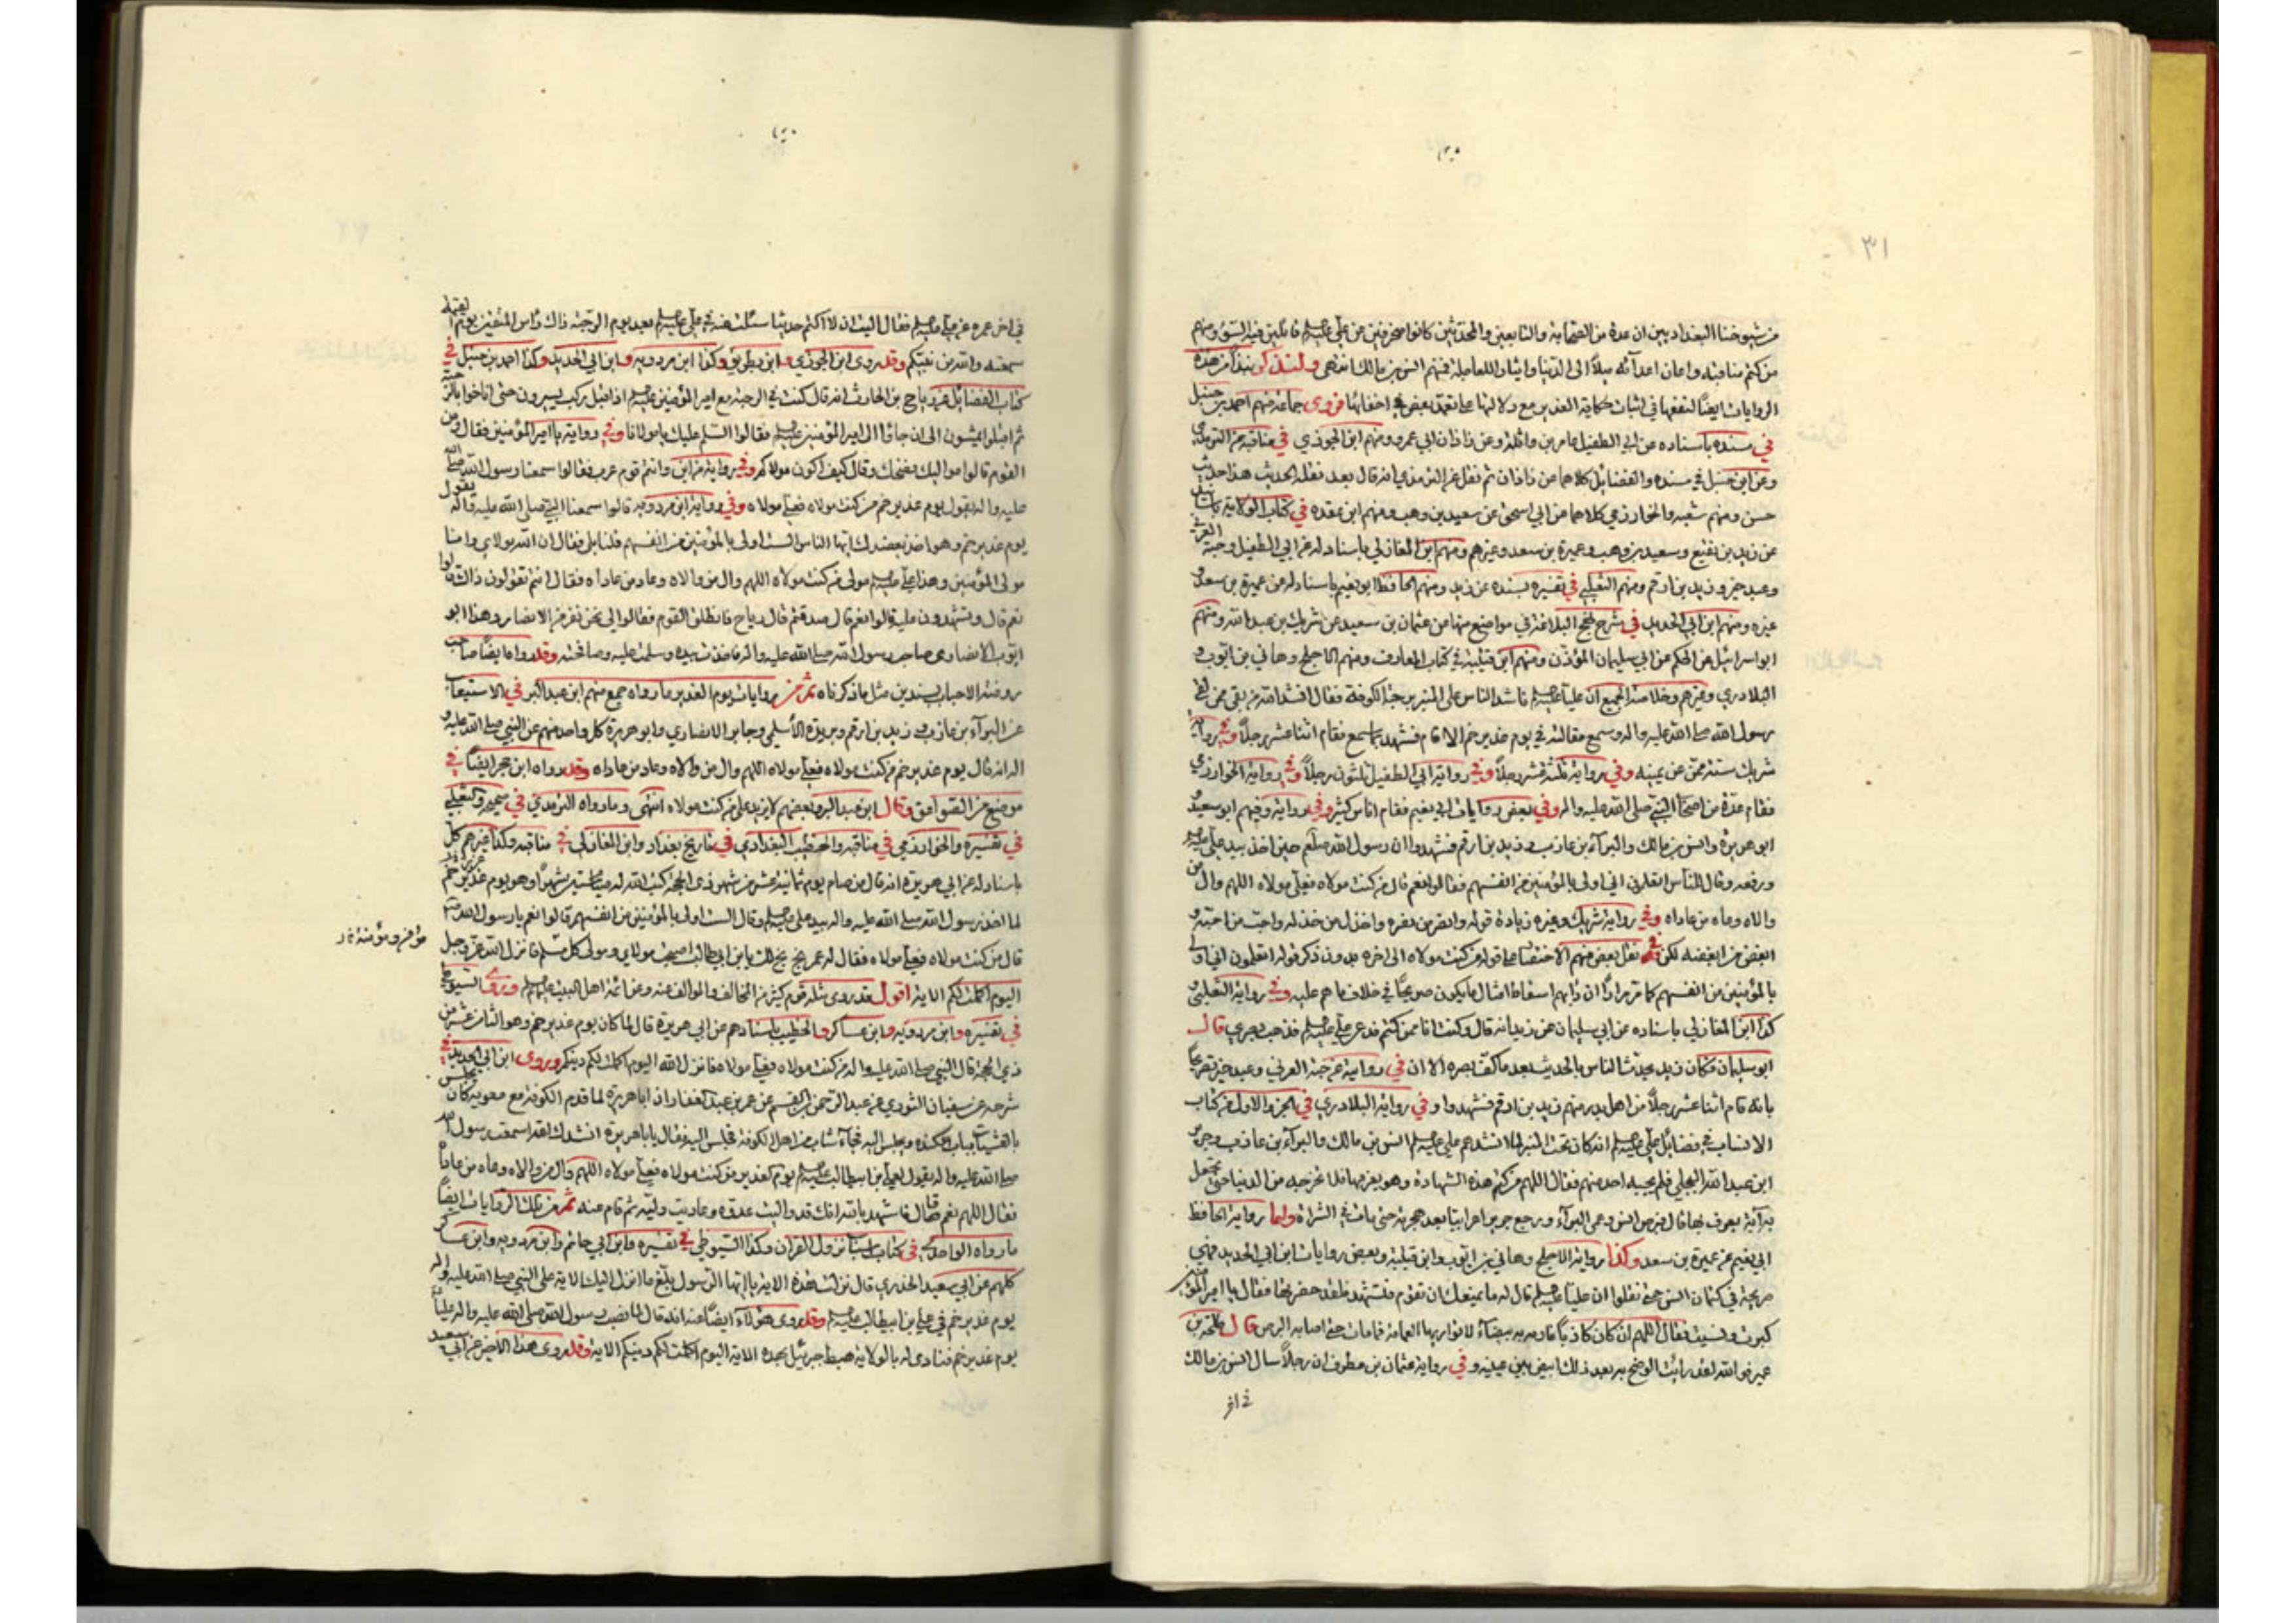 ٣١
من شيوخنا البغداديين ان عدة من الصحابة والتابعين والمحدثين كانوا منحرفين عن علي عليه السلم قائلين فيه السوء ومنهم
من كتم مناقبه واعان اعدائه ميلاً الى الدنيا وايثاراً للعاجلة فمنهم انس بن مالك انتهى ولنذكر نبذاً من هذه
الروايات ايضاً لنفعها في اثبات حكاية الغدير مع دلالتها على تعمد بعض في اخفائها فروى جماعة منهم احمد بن حنبل
في مسنده باسناده عن ابي الطفيل عامر بن واثلة وعن زاذان ابي عمرو ومنهم ابن الجوزي في مناقبه عن الترمذي
وعن ابن حنبل في مسنده والفضائل كلاهما عن زاذان ثم نقل عن الترمذي انه قال بعد نقله الحديث هذا حديث
حسن ومنهم شعبه والخوارزمي كلاهما عن ابي اسحق عن سعيد بن وهب ومنهم ابن عقده في كتاب الولاية
عن زيد بن نفيع وسعيد بن وهب وعميرة بن سعد وغيرهم ومنهم ابن المغازلي باسناد له عن ابي الطفيل وحبة العرني
وعبد خير وزيد بن ارقم ومنهم الثعلبي في تفسيره بسنده عن زيد ومنهم الحافظ ابو نعيم باسناد له عن عميرة بن سعد و
غيره ومنهم ابن ابي الحديد في شرح نهج البلاغة في مواضع منها عن عثمان بن سعيد عن شريك بن عبد الله ومنهم
ابو اسرائيل عن الحكم عن ابي سليمان المؤذن ومنهم ابن قتيبة في كتاب المعارف ومنهم الاجلح وهاني بن ايوب و
البلادري وغيرهم وخلاصة الجميع ان علياً عليه السلم ناشد الناس على المنبر برحبة الكوفة فقال انشد الله من بقي ممن لقي
رسول الله صلى الله عليه واله وسمع مقالته في يوم غدير خم الا قام فشهد بما سمع فقام اثنا عشر رجلاً وفي رواية
شريك ستة ممن عن يمينه وفي رواية ثلثة عشر رجلاً وفي رواية ابي الطفيل ثلثون رجلاً وفي رواية الخوارزمي
فقام عدة من اصحاب النبي صلى الله عليه واله وفي بعض روايات ابي نعيم فقام اناس كثير وفي رواية وفيهم ابو سعيد و
ابو هريرة وانس بن مالك والبراء بن عازب وزيد بن ارقم فشهدوا ان رسول الله صلعم حين اخذ بيد علي عليه السلم
ورفعه وقال للناس اتعلمون اني اولى بالمؤمنين من انفسهم فقالوا نعم قال من كنت مولاه فعلي مولاه اللهم وال من
والاه وعاد من عاداه وفي رواية شريك وغيره زيادة قوله وانصر من نصره واخذل من خذله واحب من احبه و
ابغض من ابغضه لكن في نقل بعض منهم الاختصار على قوله من كنت مولاه الى اخره بدون ذكر قوله اتعلمون اني اولى
بالمؤمنين من انفسهم كما مر مراراً ان دابهم اسقاط امثال ما يكون صريحاً في خلاف ما هم عليه وفي رواية الثعلبي و
كذا ابن المغازلي باسناده عن ابي سليمان عن زيد انه قال وكنت انا ممن كتم فدعى علي عليه السلم فذهب بصري قال
ابو سليمان فكان زيد يحدث الناس بالحديث بعد ما كف بصره الا ان في رواية عن حبة العرني وعبد خير تصريحاً
بانه قام اثنا عشر رجلاً من اهل بدر منهم زيد بن ارقم فشهدوا وفي رواية البلادري في الجزء الاول من كتاب
الانساب في فضائل علي عليه السلم انه كان تحت المنبر لما انشدهم علي عليه السلم انس بن مالك والبراء بن عازب وجرير
ابن عبد الله البجلي فلم يجبه احد منهم فقال اللهم من كتم هذه الشهادة وهو يعرفها فلا تخرجه من الدنيا حتى تجعل
به آية يعرف بها قال فبرص انس وعمى البراء ورجع جرير اعرابيا بعد هجرته حتى مات في الشراة واما رواية الحافظ
ابي نعيم عن عميرة بن سعد وكذا رواية الاجلح وهاني بن ايوب وابن قتيبة وبعض روايات ابن ابي الحديد فهي
صريحة في كتمان انس حتى نقلوا ان علياً عليه السلم قال له ما يمنعك ان تقوم فتشهد فلقد حضرتها فقال يا امير المؤمنين
كبرت ونسيت فقال اللهم ان كان كاذباً فارمه ببيضاء لا تواريها العمامة فما مات حتى اصابه البرص قال طلحة بن
عمير فوالله لقد رايت الوضح به بعد ذلك ابيض بين عينيه وفي رواية عثمان بن مطرف ان رجلاً سال انس بن مالك
في اخر
في اخر عمره عن علي عليه السلم فقال اليت ان لا اكتم حديثا سئلت عنه في علي عليه السلم بعد يوم الرحبة ذاك رأس المتقين يوم القيمة
سمعته والله من نبيكم وقد روى ابن الجوزي وابن بطريق وكذا ابن مردويه وابن ابي الحديد وكذا احمد بن حنبل في
كتاب الفضائل عن رياح بن الحارث انه قال كنت في الرحبة مع امير المؤمنين عليه السلم اذ اقبل ركب يسيرون حتى اناخوا بالرحبة
ثم اقبلوا يمشون الى ان جاؤا الى امير المؤمنين عليه السلم فقالوا السلم عليك يا مولانا وفي رواية يا امير المؤمنين فقال ومن
القوم قالوا مواليك فضحك وقال كيف اكون مولاكم وفي رواية من اين وانتم قوم عرب فقالوا سمعنا رسول الله صلى الله
عليه واله يقول يوم غدير خم من كنت مولاه فعلي مولاه وفي رواية ابن مردويه قالوا سمعنا النبي صلى الله عليه واله يقول
يوم غدير خم وهو اخذ بعضدك ايها الناس الست اولى بالمؤمنين من انفسهم قلنا بلى فقال ان الله مولاي وانا
مولى المؤمنين وهذا علي عليه السلم مولى من كنت مولاه اللهم وال من والاه وعاد من عاداه فقال انتم تقولون ذاك قالوا
نعم قال وتشهدون عليه قالوا نعم قال صدقتم قال رياح فانطلق القوم فقالوا لي نحن نفر من الانصار وهذا ابو
ايوب الانصاري صاحب رسول الله صلى الله عليه واله فاخذت بيده وسلمت عليه وصافحته وقد رواه ايضاً صاحب
روضة الاحباب بسندين مثل ما ذكرناه ثم من روايات يوم الغدير ما رواه جمع منهم ابن عبد البر في الاستيعاب
عن البراء بن عازب و زيد بن ارقم وبريدة الاسلمي وجابر الانصاري وابو هريرة كل واحد منهم عن النبي صلى الله عليه و
اله انه قال يوم غدير خم من كنت مولاه فعلي مولاه اللهم وال من والاه وعاد من عاداه وقد رواه ابن حجر ايضاً في
موضع من الصواعق وقال ابن عبد البر وبعضهم لا يزيد على من كنت مولاه انتهى وما رواه الترمذي في صحيحه والثعلبي
في تفسيره والخوارزمي في مناقبه والخطيب البغدادي في تاريخ بغداد وابن المغازلي في مناقبه وكذا غيرهم كل
باسناد له عن ابي هريرة انه قال من صام يوم ثمانية عشر من شهر ذي الحجة كتب الله له صيام ستين شهراً وهو يوم غدير خم
لما اخذ رسول الله صلى الله عليه واله بيد علي عليه السلم وقال الست اولى بالمؤمنين من انفسهم قالوا نعم يا رسول الله
قال من كنت مولاه فعلي مولاه فقال له عمر بخ بخ لك يا بن ابي طالب اصبحت مولاي ومولى كل مسلم فانزل الله عز وجل
مؤمن ومؤمنة
اليوم اكملت لكم الاية اقول قد روى مثله قوم كثير من المخالف والموالف عنه وعن ائمة اهل البيت عليهم السلم وروى السيوطي
في تفسيره وابن مردويه وابن عساكر والخطيب باسنادهم عن ابي هريرة قال لما كان يوم غدير خم وهو الثامن عشر من
ذي الحجة قال النبي صلى الله عليه واله من كنت مولاه فعلي مولاه فانزل الله اليوم اكملت لكم دينكم وروى ابن ابي الحديد في
شرحه عن سفيان الثوري عن عبد الرحمن بن القسم عن عمر بن عبد الغفار ان ابا هريرة لما قدم الكوفة مع معوية كان يجلس
بالعشيات بباب كندة ويجلس اليه فجاء شاب من اهل الكوفة فجلس اليه فقال يا ابا هريرة انشدك الله اسمعت رسول الله
صلى الله عليه واله يقول لعلي بن ابيطالب عليه السلم يوم الغدير من كنت مولاه فعلي مولاه اللهم وال من والاه وعاد من عاداه
فقال اللهم نعم قال فاشهد بالله انك قد واليت عدوه وعاديت وليه ثم قام عنه ثم من تلك الروايات ايضاً
ما رواه الواحدي في كتاب اسباب نزول القران وكذا السيوطي في تفسيره وابن ابي حاتم وابن مردويه وابن عساكر
كلهم عن ابي سعيد الخدري قال نزلت هذه الاية يا ايها الرسول بلغ ما انزل اليك الاية على النبي صلى الله عليه واله
يوم غدير خم في علي بن ابيطالب عليه السلم وقد روى هؤلاء ايضاً عنه انه قال لما نصب رسول الله صلى الله عليه واله علياً
يوم غدير خم فنادى له بالولاية هبط جبرئيل بهذه الاية اليوم اكملت لكم دينكم الاية وقد روى هذا الاخير عن ابي سعيد